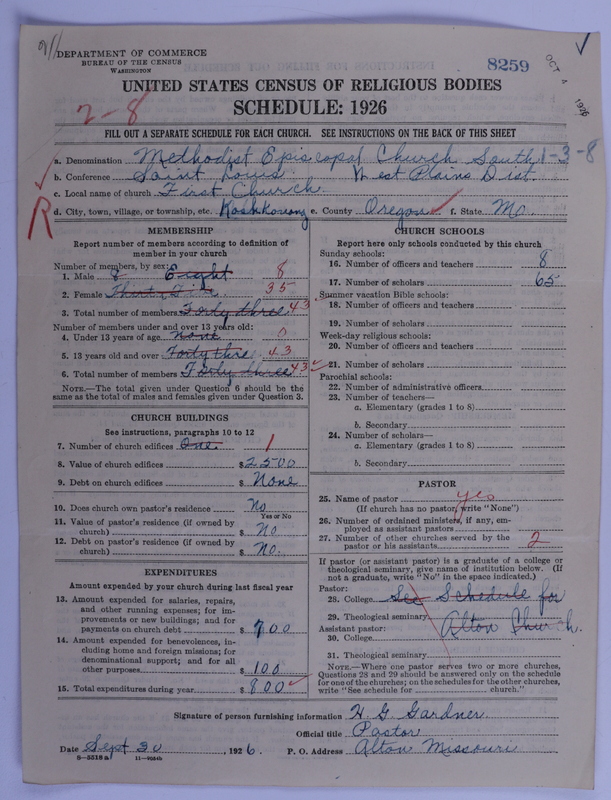 911
DEPARTMENT OF COMMERCE
BUREAU OF THE CENSUS
WASHINGTON
8259
OCT 4 1926
UNITED STATES CENSUS OF RELIGIOUS BODIES
SCHEDULE: 1926
2-8
FILL OUT A SEPARATE SCHEDULE FOR EACH CHURCH. SEE INSTRUCTIONS ON THE BACK OF THIS SHEET
a. Denomination Methodist Episcopal Church South 1-3-8
b. Conference Saint Louis West Plains Dist.
c. Local name of church First Church
R
d. City, town, village, or township, etc. Koshkonong e. County Oregon f. State Mo.
MEMBERSHIP
Report number of members according to definition of
member in your church
Number of members, by sex:
1. Male 8 Eight 8
2. Female Thirty Five 35
3. Total number of members Forty three 43
Number of members under and over 13 years old:
4. Under 13 years of age None 0
5. 13 years old and over Forty three 43
6. Total number of members Forty three 43
NOTE.—The total given under Question 6 should be the
same as the total of males and females given under Question 3.
CHURCH BUILDINGS
See instructions, paragraphs 10 to 12
7. Number of church edifices One 1
8. Value of church edifices $ 2500
9. Debt on church edifices $ None
10. Does church own pastor's residence No
Yes or No
11. Value of pastor's residence (if owned by
church) $ No
12. Debt on pastor's residence (if owned by
church) $ No.
EXPENDITURES
Amount expended by church during last fiscal year
13. Amount expended for salaries, repairs,
and other running expenses; for im-
provements or new buildings; and for
payments on church debt $ 700
14. Amount expended for benevolences, in-
cluding home and foreign missions; for
denominational support; and for all
other purposes $ 100
15. Total expenditures during year $ 800
CHURCH SCHOOLS
Report here only schools conducted by this church
Sunday schools:
16. Number of officers and teachers 8
17. Number of scholars 65
Summer vacation Bible schools:
18. Number of officers and teachers
19. Number of scholars
Week-day religious schools:
20. Number of officers and teachers
21. Number of scholars
Parochial schools:
22. Number of administrative officers
23. Number of teachers—
a. Elementary (grades 1 to 8)
b. Secondary
24. Number of scholars—
a. Elementary (grades 1 to 8)
b. Secondary
PASTOR
25. Name of pastor yes
(If church has no pastor, write "None")
26. Number of ordained ministers, if any, em-
ployed as assistant pastors
27. Number of other churches served by the
pastor or his assistants 2
If pastor (or assistant pastor) is a graduate of a college or
theological seminary, give name of institution below. (If
not a graduate, write "No" in the space indicated.)
Pastor:
28. College See Schedule for
29. Theological seminary
Alton Church.
Assistant pastor:
30. College
31. Theological seminary
NOTE.—Where one pastor serves two or more churches,
Questions 28 and 29 should be answered only on the schedule
for one of the churches; on the schedules for the other churches,
write "See schedule for church."
Signature of person furnishing information H. G. Gardner
Official title Pastor
Date Sept 30, 1926. P. O. Address Alton Missouri
8-5518a 11-9054b